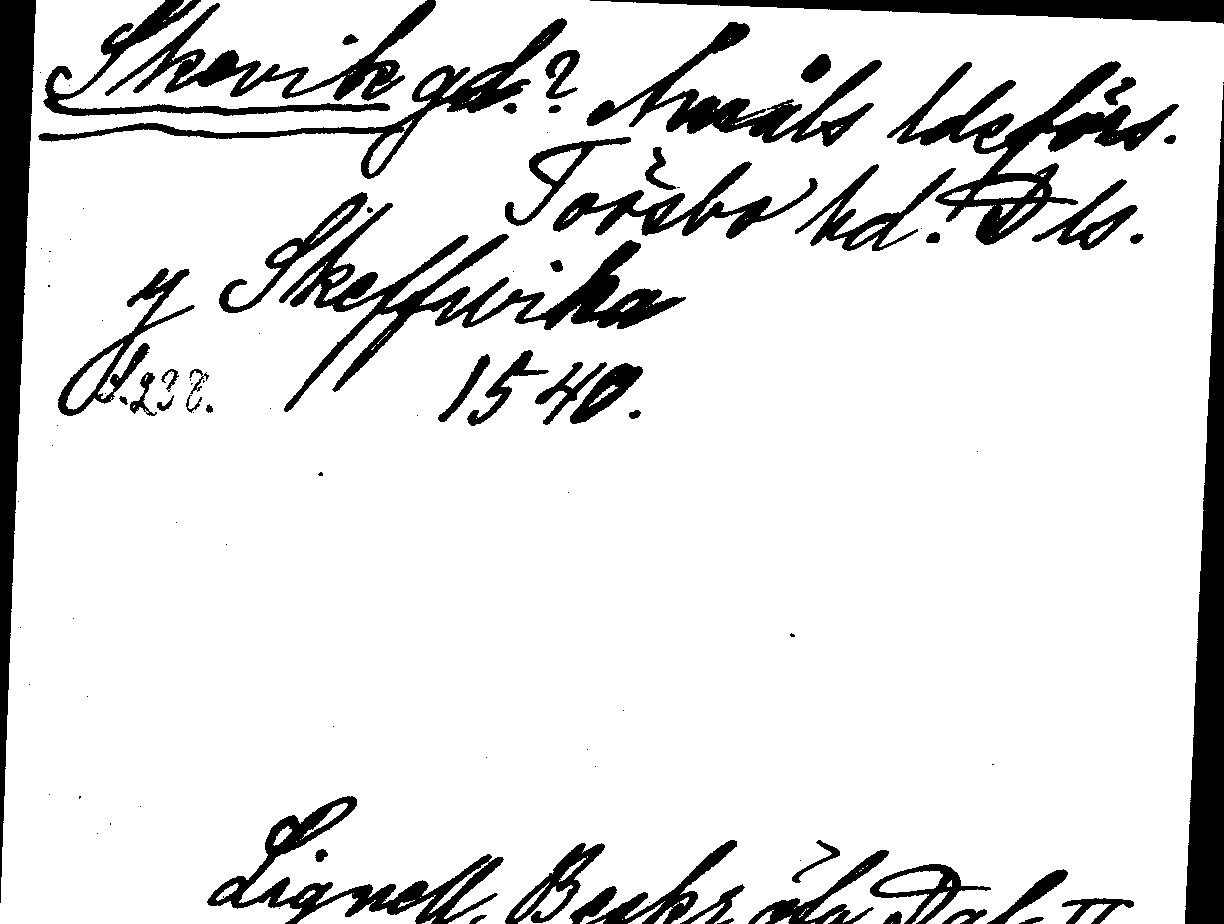 Skevik gd.? Åmåls ldsförs.
Tössbo hd. Dls.
y Skeffwika
S. 238. 1540.
Lignell, Beskr. öfv. Dal. II